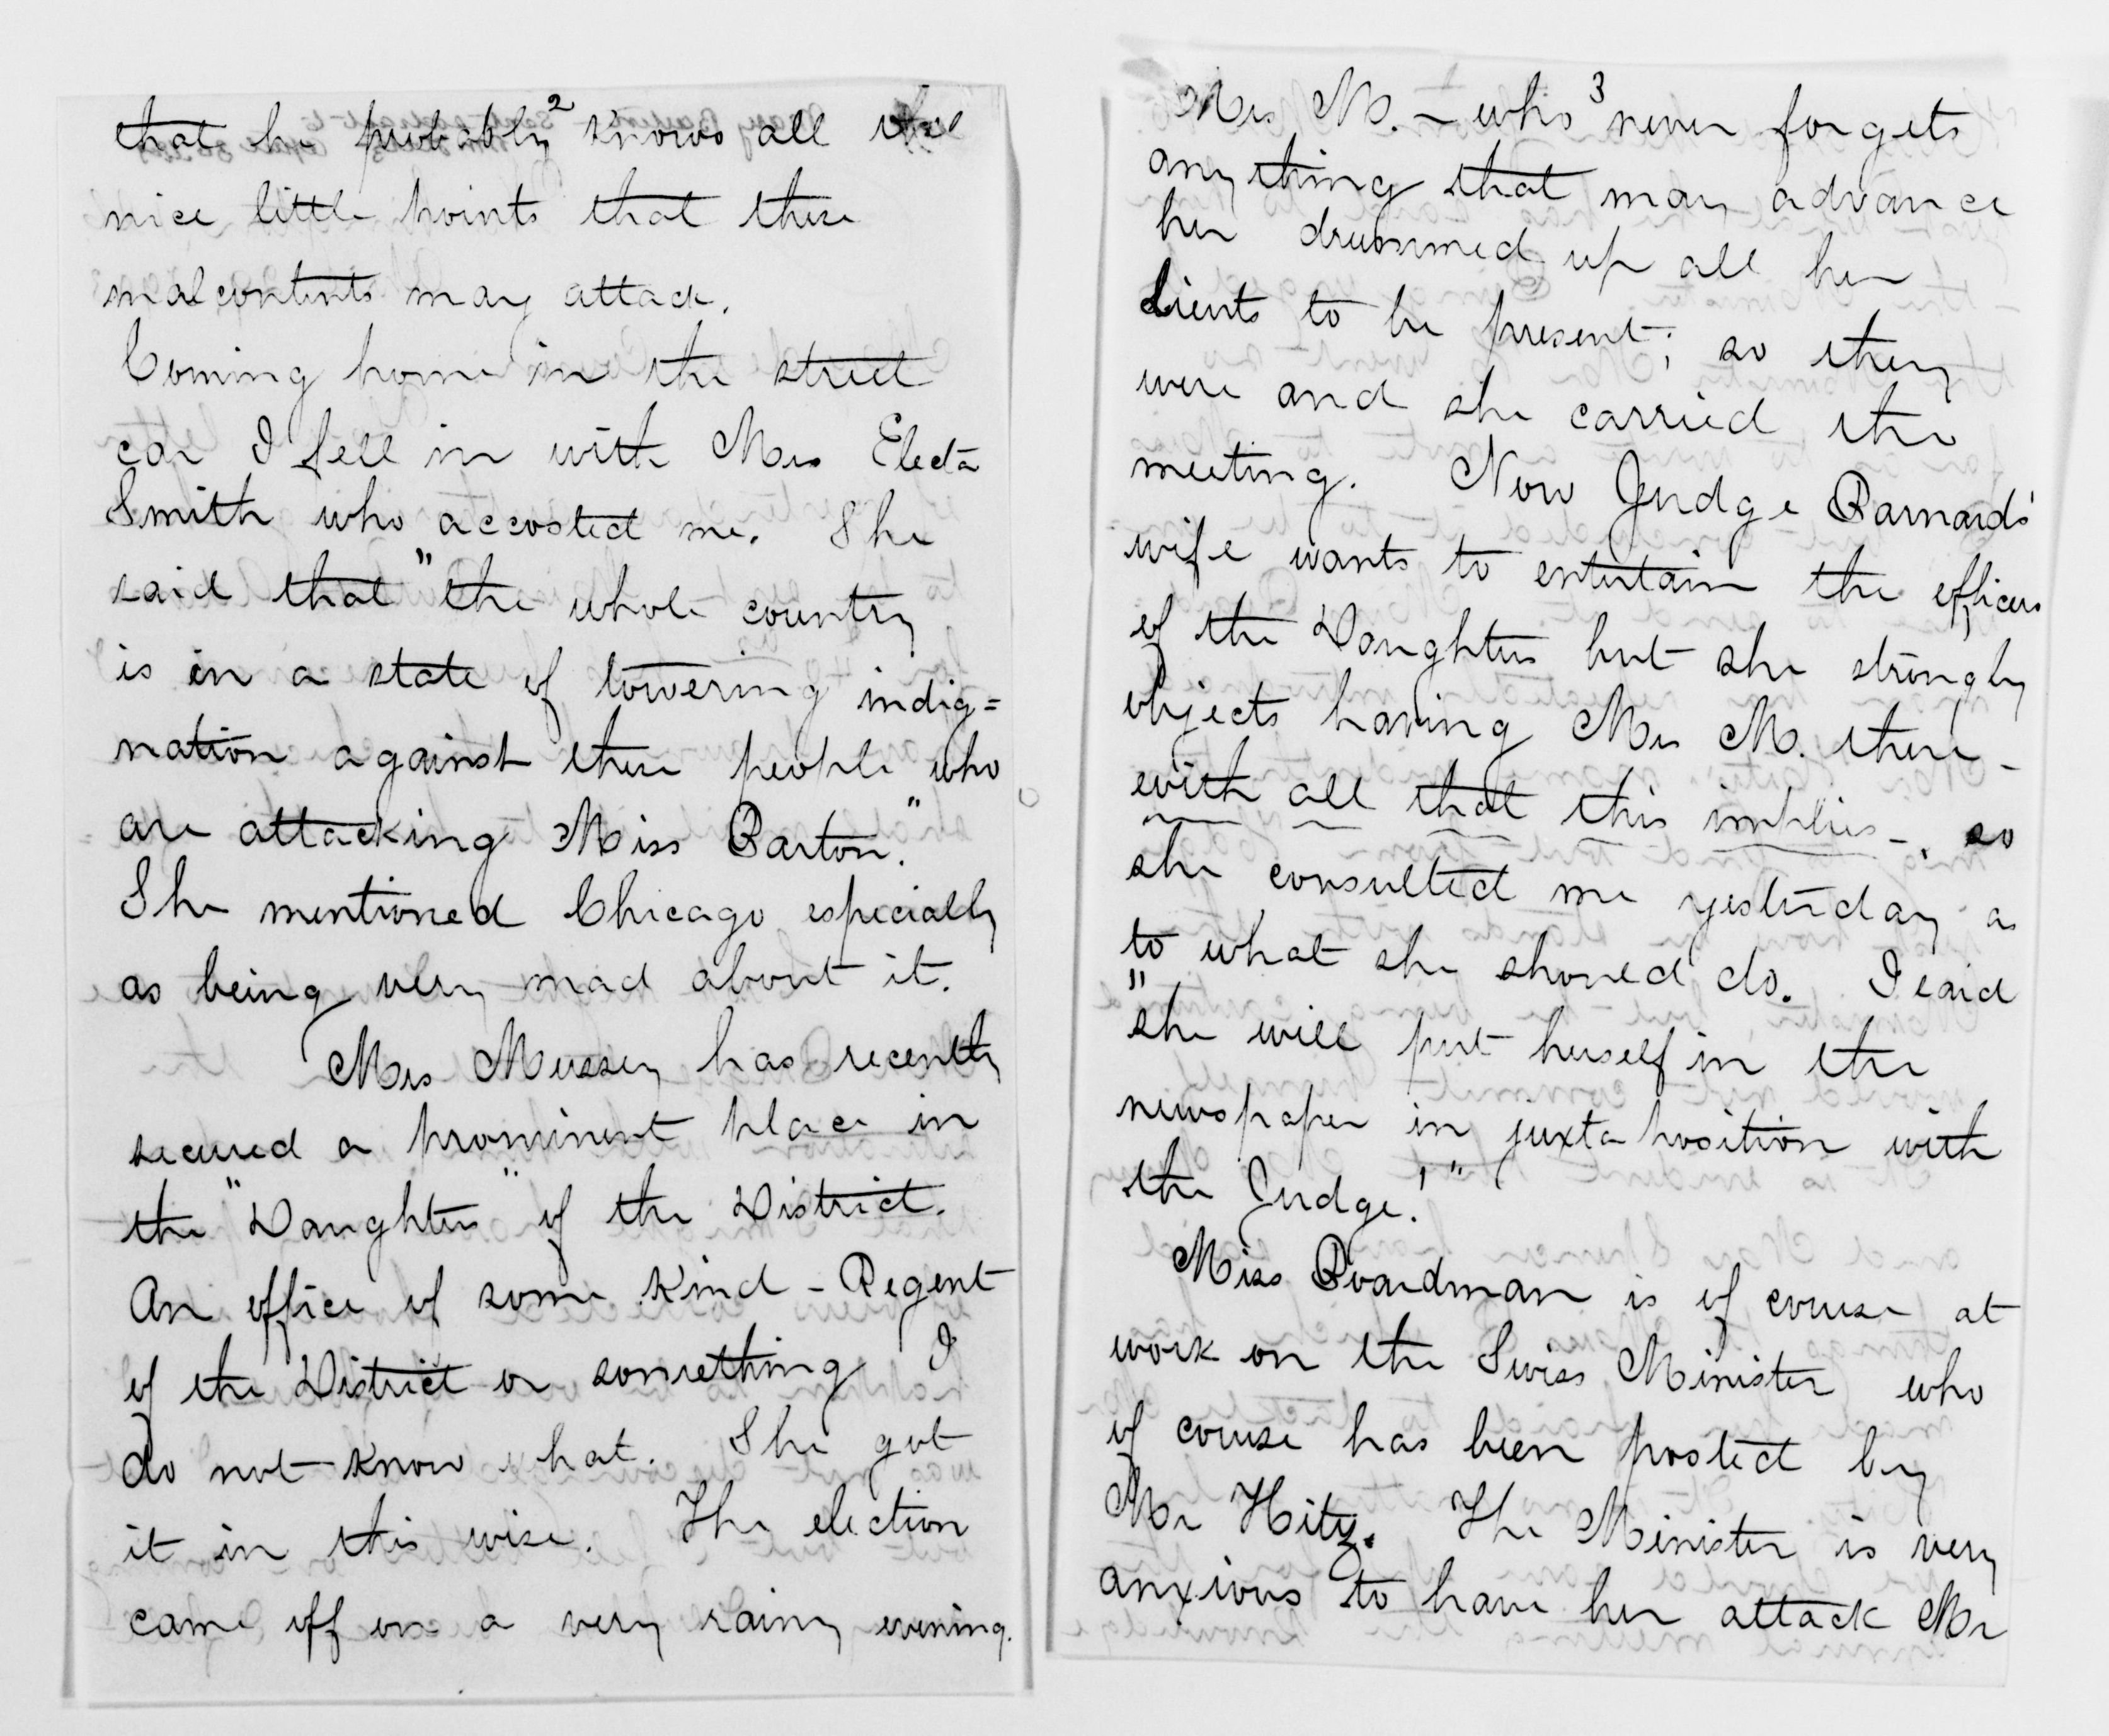 2
that he probably knows all the
nice little points that these
malcontents may attack.
Coming home in the street
car I fell in with Mrs Electa
Smith who accosted me. She
said that "the whole country
is in a state of towering indig=
nation against these people who
are attacking Miss Barton."
She mentioned Chicago especially
as being very mad about it.
Mrs Mussey has recently
secured a prominent place in
the "Daughters" of the District.
An office of some kind - Regent
of the District or something I
do not know what. She got
it in this wise. The election
came off on a very rainy evening.
3
Mrs M. - who never forgets
anything that may advance
her drummed up all her
clients to be present; so they
were and she carried the
meeting. Now Judge Barnard's
wife wants to entertain the officers
of the Daughters but she strongly
objects having Mrs M. there -
with all that this implies -, so
she consulted me yesterday as
to what she should do. I said
"she will put herself in the
newspaper in juxtaposition with
the Judge!"
Miss Boardman is of course at
work on the Swiss Minister who
of course has been posted by
Mr Hitz. The Minister is very
anxious to have her attack Mr